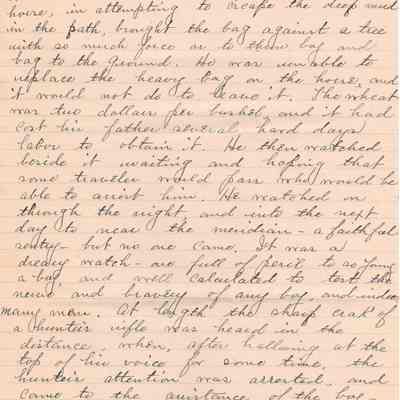 horse, in attempting to escape the deep mud
in the path, brought the bag against a tree
with so much force as to throw boy and
bag to the ground. He was unable to
replace the heavy bag on the horse, and
it would not do to leave it. The wheat
was two dollars per bushel, and it had
cost his father several hard days
labor to obtain it. He then watched
beside it waiting and hoping that
some traveller would pass who would be
able to assist him. He watched on
through the night, and into the next
day to near the meridian - a faithful
sentry - but no one came. It was a
dreary watch - one full of peril to so young
a boy, and well calculated to test the
nerve and bravery of any boy, and indeed
many men. At length the sharp crak of
a hunters rifle was heard in the
distance, when, after hallooing at the
top of his voice for some time, the
hunters attention was arrested, and
came to the assistance of the boy -